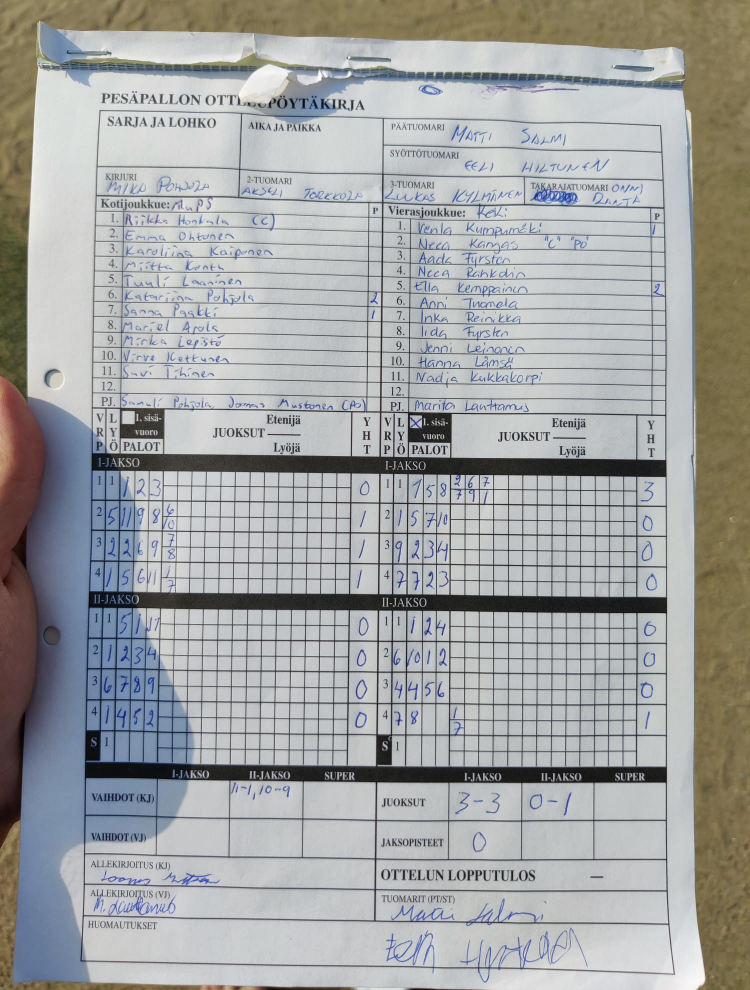 PESÄPALLON OTTELUPÖYTÄKIRJA
SARJA JA LOHKO
AIKA JA PAIKKA
PÄÄTUOMARI MATTI SALMI
SYÖTTÖTUOMARI EELI HILTUNEN
KIRJURI MIKA POHJOLA
2-TUOMARI AKSELI TORKKOLA
3-TUOMARI LUUKAS KYLMÄNEN
TAKARAJATUOMARI ONNI RANTA
Kotijoukkue: MuPS P
1. Riikka Honkala (C)
2. Emma Ohtonen
3. Karoliina Kaiponen
4. Miitta Kontu
5. Tuuli Laaninen
6. Katariina Pohjola 2
7. Sanna Paakki 1
8. Mariel Arola
9. Mirka Lepistö
10. Virve Kettunen
11. Suvi Tihinen
12.
PJ. Samuli Pohjola, Joonas Mustonen (PJ)
Vierasjoukkue: KeKi P
1. Venla Kumpumäki 1
2. Neea Kangas "C" "PJ"
3. Aada Fyrsten
4. Neea Rahkolin
5. Ella Kemppainen 2
6. Anni Tuomela
7. Inka Reinikka
8. Iida Fyrsten
9. Jenni Leinonen
10. Hanna Lämsä
11. Nadja Kukkakorpi
12.
PJ. Marita Lauttamus
VRP LYÖ 1. sisävuoro PALOT Etenijä JUOKSUT Lyöjä YHT
I-JAKSO
1 1 1 2 3 0
2 5 11 9 8 6/10 1
3 2 2 6 9 7/8 1
4 1 5 6 11 1/7 1
II-JAKSO
1 1 5 1 11 0
2 1 2 3 4 0
3 6 7 8 9 0
4 1 4 5 2 0
S 1
VRP LYÖ X 1. sisävuoro PALOT Etenijä JUOKSUT Lyöjä YHT
I-JAKSO
1 1 1 5 8 2/7 6/9 7/1 3
2 1 5 7 10 0
3 9 2 3 4 0
4 7 7 2 3 0
II-JAKSO
1 1 1 2 4 0
2 6 10 1 2 0
3 4 4 5 6 0
4 7 8 1/7 1
S 1
I-JAKSO II-JAKSO SUPER
VAIHDOT (KJ) 11-1, 10-9
VAIHDOT (VJ)
I-JAKSO II-JAKSO SUPER
JUOKSUT 3-3 0-1
JAKSOPISTEET 0
ALLEKIRJOITUS (KJ)
ALLEKIRJOITUS (VJ) M. Lauttamus
HUOMAUTUKSET
OTTELUN LOPPUTULOS —
TUOMARIT (PT/ST)
Matti Salmi